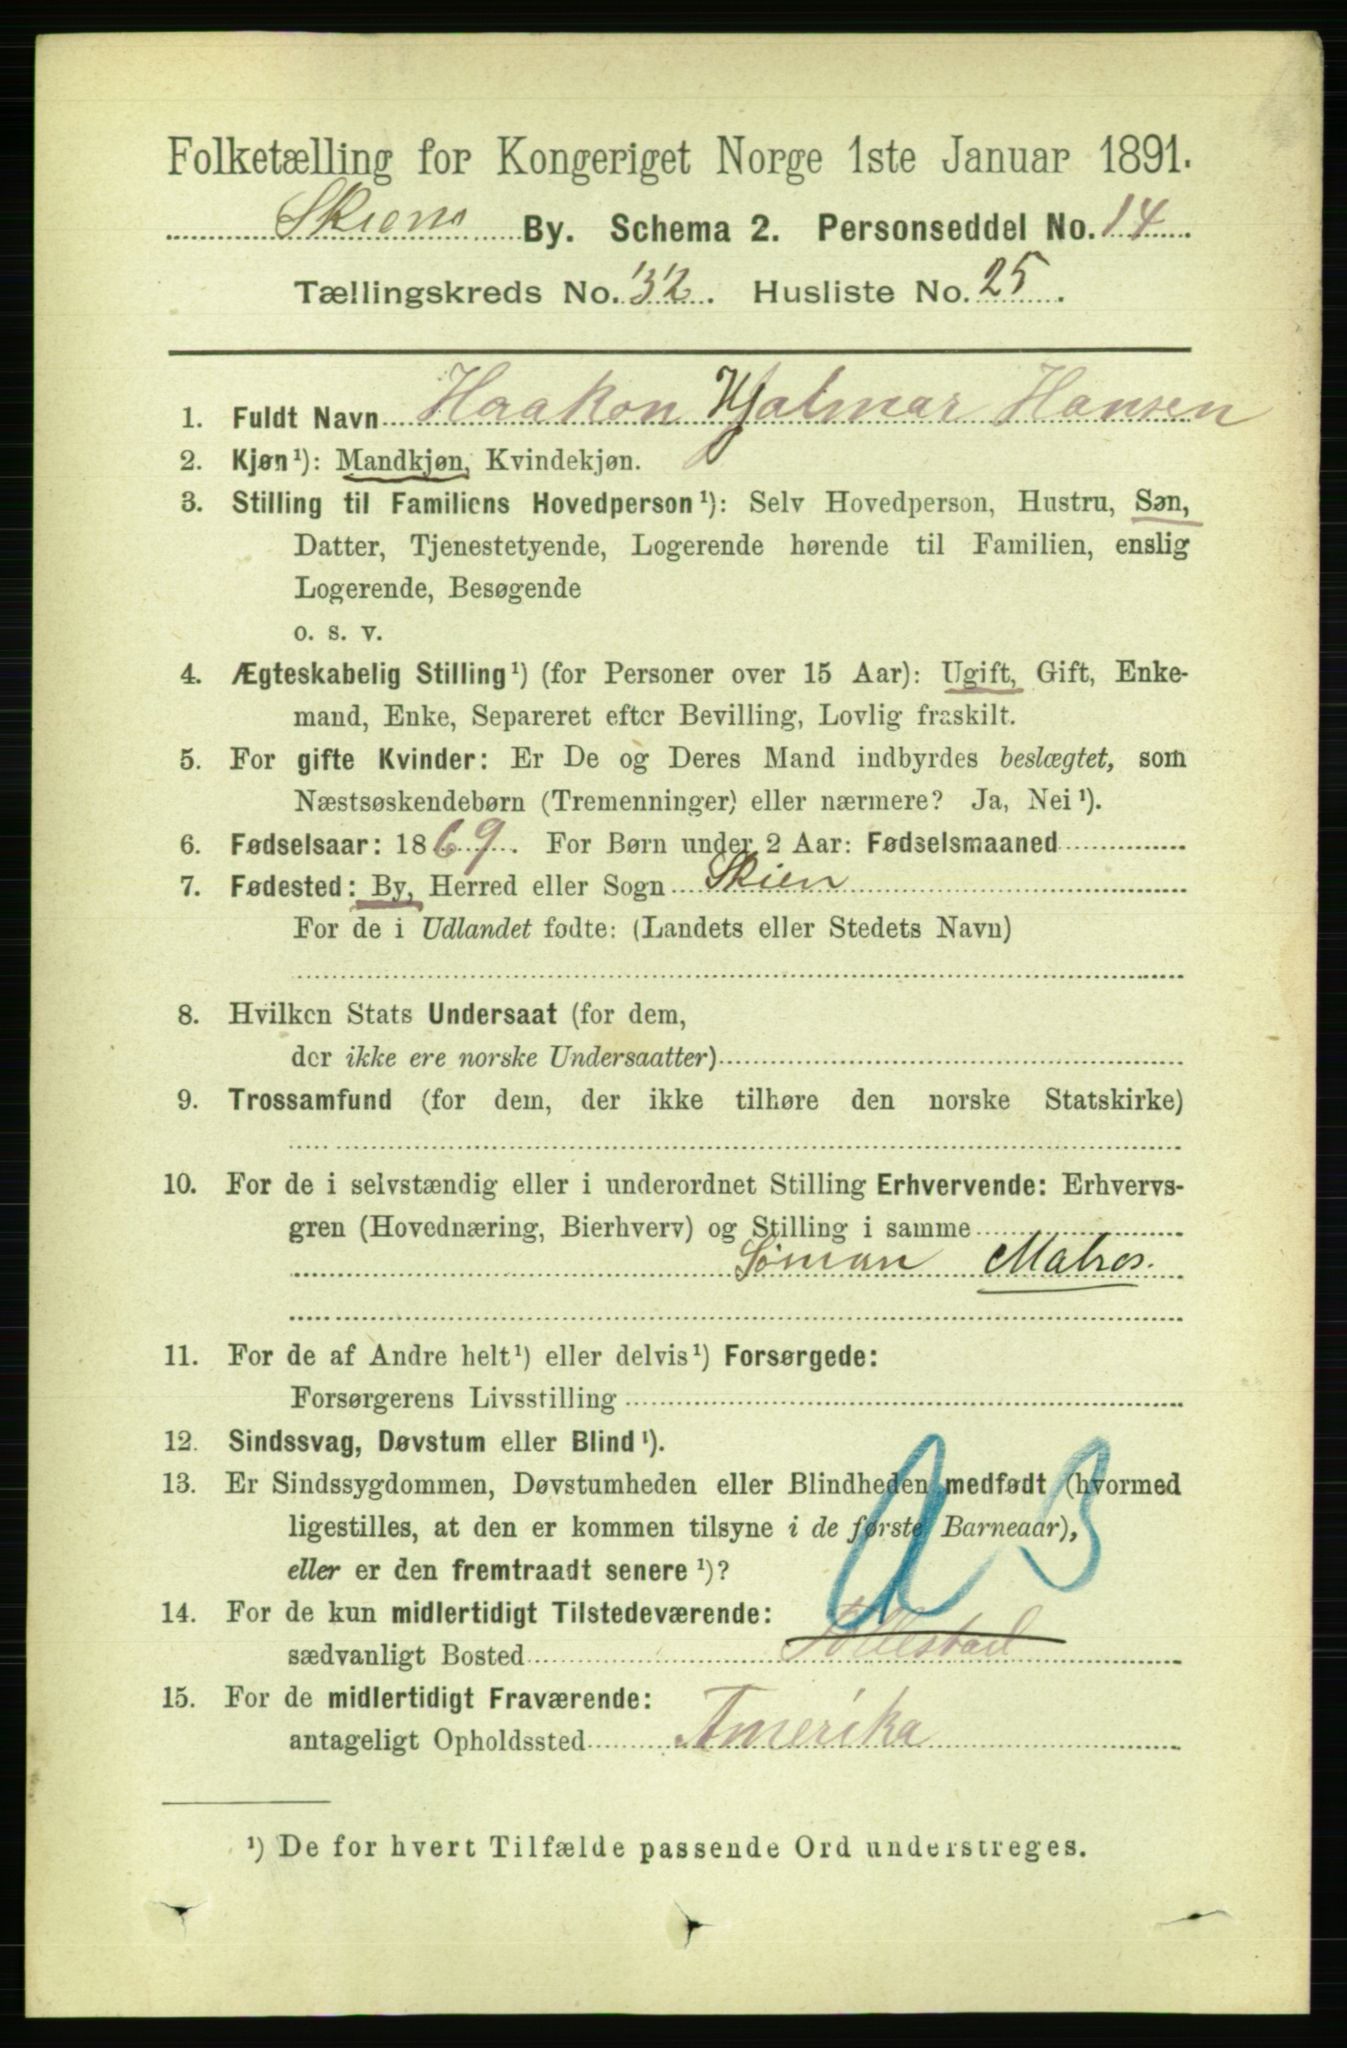 Folketælling for Kongeriget Norge 1ste Januar 1891.
Skiens By. Schema 2. Personseddel No. 14
Tællingskreds No. 32. Husliste No. 25.
1. Fuldt Navn Haakon Hjalmar Hansen
2. Kjøn¹): Mandkjøn, Kvindekjøn.
3. Stilling til Familiens Hovedperson¹): Selv Hovedperson, Hustru, Søn,
Datter, Tjenestetyende, Logerende hørende til Familien, enslig
Logerende, Besøgende
o. s. v.
4. Ægteskabelig Stilling¹) (for Personer over 15 Aar): Ugift, Gift, Enke-
mand, Enke, Separeret efter Bevilling, Lovlig fraskilt.
5. For gifte Kvinder: Er De og Deres Mand indbyrdes beslægtet, som
Næstsøskendebørn (Tremenninger) eller nærmere? Ja, Nei¹).
6. Fødselsaar: 1869. For Børn under 2 Aar: Fødselsmaaned
7. Fødested: By, Herred eller Sogn Skien
For de i Udlandet fødte: (Landets eller Stedets Navn)
8. Hvilken Stats Undersaat (for dem,
der ikke ere norske Undersaatter)
9. Trossamfund (for dem, der ikke tilhøre den norske Statskirke)
10. For de i selvstændig eller i underordnet Stilling Erhvervende: Erhvervs-
gren (Hovednæring, Bierhverv) og Stilling i samme
Söman Matros.
11. For de af Andre helt¹) eller delvis¹) Forsørgede:
Forsørgerens Livsstilling
12. Sindssvag, Døvstum eller Blind¹).
13. Er Sindssygdommen, Døvstumheden eller Blindheden medfødt (hvormed
ligestilles, at den er kommen tilsyne i de første Barneaar),
eller er den fremtraadt senere¹)?
14. For de kun midlertidigt Tilstedeværende:
sædvanligt Bosted
15. For de midlertidigt Fraværende:
antageligt Opholdssted Amerika
¹) De for hvert Tilfælde passende Ord understreges.